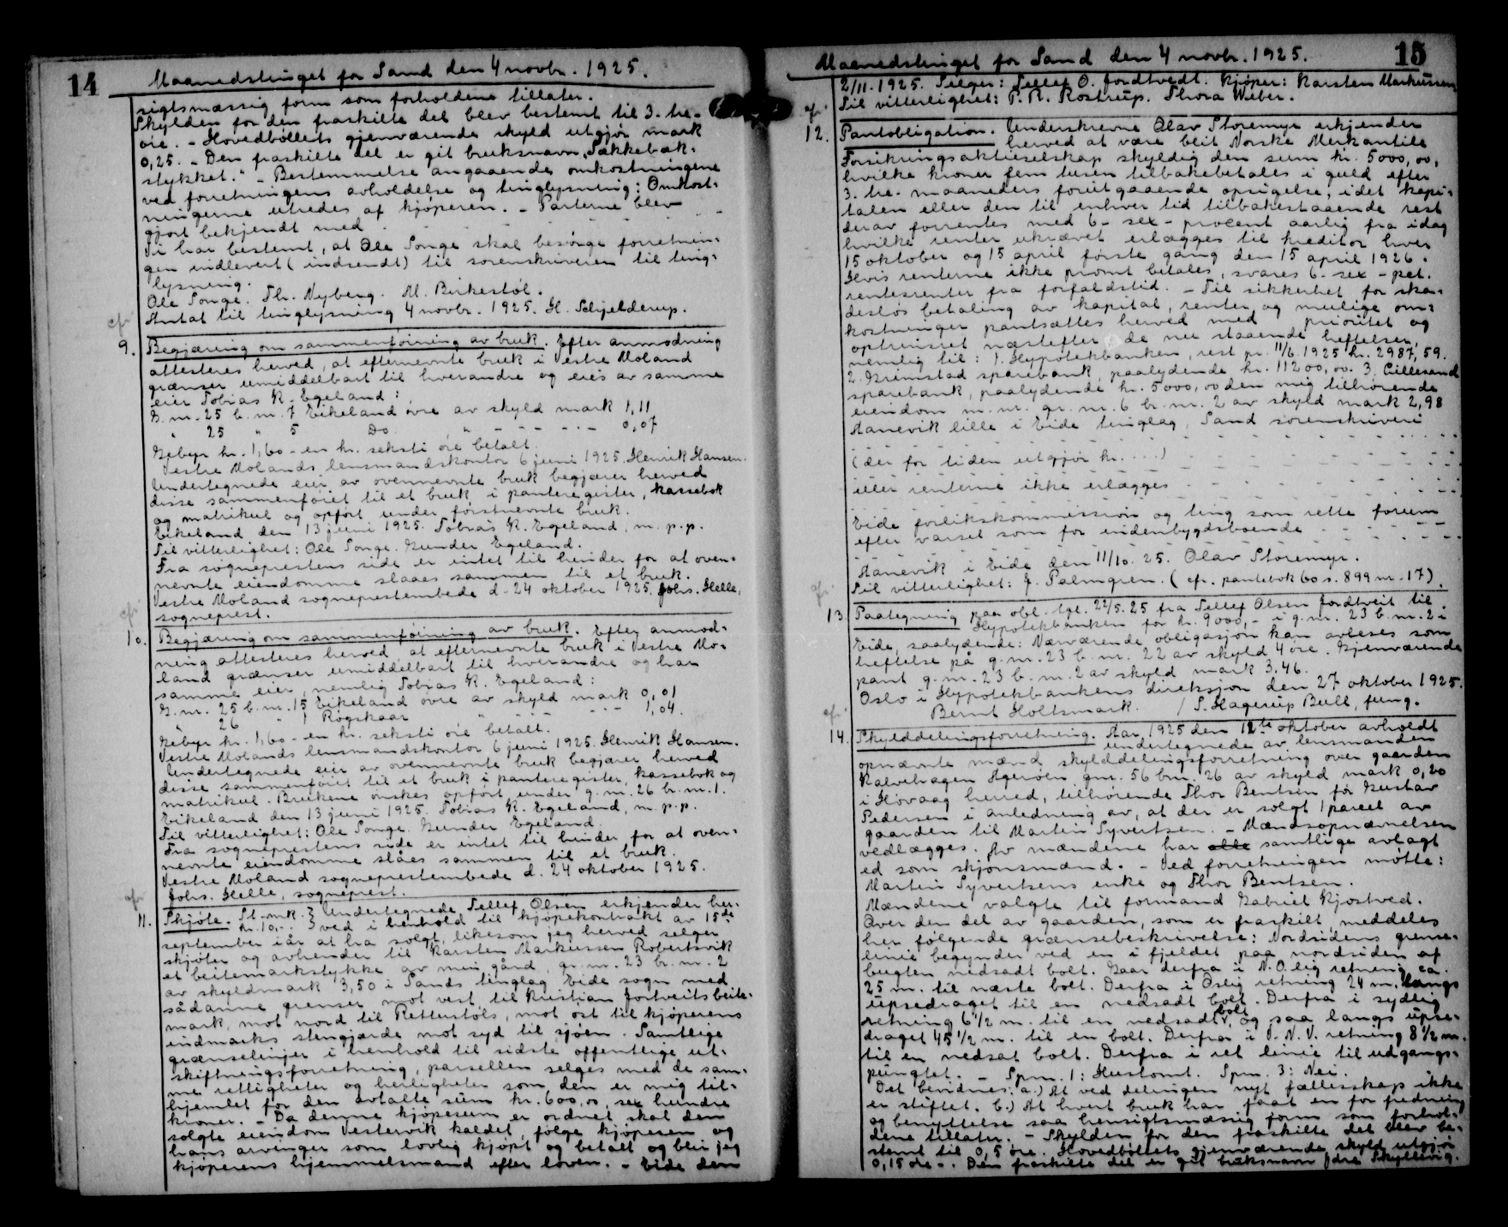 14
Maanedstinget for Sand den 4 novbr. 1925.
sigtsmæssig form som forholdene tillater.
Skylden for den fraskilte del blev bestemt til 3. tre-
öre. - Hovedböllets gjenværende skyld utgjör mark
0,25. - Den fraskilte del er git bruksnavn "Sækkebæk-
stykket." - Bestemmelse angaaende omkostningene
ved forretningens avholdelse og tinglysning: Omkost-
ningerne utredes af kjöperen. - Parterne blev
gjort bekjendt med - - - - - -
Vi har bestemt, at Ole Songe skal besörge forretnin-
gen indlevert (indsendt) til sorenskriveren til ting-
lysning.
Ole Songe. Th. Nyberg. M. Birkestöl.
Antat til tinglysning 4 novbr. 1925. H. Schjelderup.
cfr.
9. Begjæring om sammenföining av bruk. Efter anmodning
attesteres herved, at efternevnte bruk i Vestre Moland
grænser umiddelbart til hverandre og eies av samme
eier Tobias K. Egeland:
G. nr. 25 b. nr. 7 Eikeland övre av skyld mark 1,11
" 25 " 5 Do. " - - - - 0,07
Gebyr kr. 1,60 - en kr. seksti öre betalt.
Vestre Molands lensmandskontor 6 juni 1925. Henrik Hansen.
Undertegnede eier av ovennevnte bruk begjærer herved
disse sammenföiet til et bruk i panteregister, kassebok
og matrikul og opfört under förstnevnte bruk.
Eikeland den 13 juni 1925. Tobias K. Egeland, m. p. p.
Til vitterlighet: Ole Songe. Gunder Egeland.
Fra sogneprestens side er intet til hinder for at oven-
nevnte eiendomme slaaes sammen til et bruk.
Vestre Moland sogneprestembede d. 24 oktober 1925. Johs. Helle,
sogneprest.
cfr.
10. Begjæring om sammenföining av bruk. Efter anmod-
ning attesteres herved at efternevnte bruk i Vestre Mo-
land grænser umiddelbart til hverandre og har
samme eier, nemlig Tobias K. Egeland:
G. nr. 25 b. nr. 15 Eikeland övre av skyld mark 0,01
" 26 " 1 Rögskaar " - - - 1,04.
Gebyr kr. 1,60 - en kr. seksti öre betalt.
Vestre Molands lensmandskontor 6 juni 1925. Henrik Hansen.
Undertegnede eier av ovennevnte bruk begjærer herved
disse sammenföiet til et bruk i panteregister, kassebok og
matrikul. Brukene önskes opfört under g. nr. 26 b. nr. 1.
Eikeland den 13 juni 1925. Tobias K. Egeland, m. p. p.
Til vitterlighet: Ole Songe. Gunder Egeland.
Fra sogneprestens side er intet til hinder for at oven-
nevnte eiendomme slåes sammen til et bruk.
Vestre Moland sogneprestembede d. 24 oktober 1925.
Johs. Helle, sogneprest.
cfr.
11. Skjöte. St. mk. Undertegnede Tellef Olsen erkjender her-
kr. 10,- ved i henhold til kjöpekontrakt av 15de
september iår at ha solgt likesom jeg herved selger
skjöter og avhender til Karsten Markussen Robertsvik
et beitemarkstykke av min gård, gr. nr. 23 br. nr. 2
av skyldmark 3,50 i Sands tinglag Eide sogn med
sådanne grenser mot vest til Kristjan Jortveits beite-
mark, mot nord til Rettestöls, mot öst til kjöperens
indmarks stengjærde mot syd til sjöen. Samtlige
grænselinjer i henhold til sidste offentlige ut-
skiftningsforretning, parsellen selges med de sam-
me rettigheter og herligheter som den er mig til-
hjemlet for den avtalte sum kr. 600,00, sex hundre
kroner. - Da denne kjöpesum er ordnet skal den
solgte eiendom Vestervik kaldet, fölge kjöperen og
hans arvinger som lovlig kjöpt og betalt og blir jeg
kjöperens hjemmelsmand efter loven. - Eide den
Maanedstinget for Sand den 4 novbr. 1925.
15
2/11. 1925. Selger: Tellef O. Jordtvedt. Kjöper: Karsten Markussen
Til vitterlighet: P. R. Rostrup. Thora Weber.
cfr.
12. Pantobligation. Underskrevne Olav Storemyr erkjender
herved at være blit Norske Merkantile
Forsikringsaktieselskap skyldig den sum kr. 5000,00,
hvilke kroner fem tusen tilbakebetales i guld efter
3. tre. maaneders forutgaaende opsigelse, idet kapi-
talen eller den til enhver tid tilbakestaaende rest
derav forrentes med 6 - sex - procent aarlig fra idag
hvilke renter ukrævet erlægges til kreditor hver
15 oktober og 15 april förste gang den 15 april 1926.
Hvis renterne ikke promt betales, svares 6 - sex - pct.
rentesrenter fra forfaldstid. - Til sikkerhet for ska-
deslös betaling av kapital, renter og mulige om-
kostninger pantsættes herved med prioritet og
optrinsret næstefter de nu staaende heftelser,
nemlig til: 1. Hypotekbanken, rest pr. 11/6. 1925 kr. 2987,59.
2. Grimstad sparebank, paalydende kr. 11200,00. 3. Lillesand
sparebank, paalydende kr. 5000,00 den mig tilhörende
eiendom m. m. gr. nr. 6 br. nr. 2 av skyld mark 2,98
Aanevik lille i Eide tinglag, Sand sorenskriveri
- - - - - -
(der for tiden utgjör kr. . . . .) - - - - -
eller renterne ikke erlægges - - - - - -
- - - - - -
Eide forlikskommission og ting som rette forum
efter varsel som for indenbygdsboende - - - - -
Aanevik i Eide den 11/10. 25. Olav Storemyr.
Til vitterlighet: J. Palmgren. (cfr. pantebok 60 s. 899 nr. 17).
cfr.
13. Paategning paa obl. tgl. 22/5. 25 fra Tellef Olsen Jordtveit til
Hypotekbanken for kr. 9000,- i g. nr. 23 b. nr. 2 i
Eide, saalydende: Nærværende obligasjon kan avleses som
heftelse på g. nr. 23 b. nr. 22 av skyld 4 öre. Gjenværende
pant g. nr. 23 b. nr. 2 av skyld mark 3,46.
Oslo i Hypotekbankens direksjon den 27 oktober 1925.
Bernt Holtsmark. / S. Hagerup Bull, fung.
cfr.
14. Skylddelingsforretning. Aar 1925 den 12te oktober avholdt
undertegnede av lensmanden
opnævnte mænd skylddelingsforretning over gaarden
Kalvehagen Ageröen gnr. 56 bnr. 26 av skyld mark 0,20
i Hövaag herred, tilhörende Thor Bentsen få Gustav
Pedersen i anledning av, at der er solgt 1 parcel av
gaarden til Martin Syvertsen. - Mændsopnævnelsen
vedlægges. Av mændene har alle samtlige avlagt
ed som skjönsmænd. - Ved forretningen mötte:
Martin Syvertsens enke og Thor Bentsen.
Mændene valgte til formand Gabriel Kjöstved.
Over den del av gaarden, som er fraskilt, meddeles
her fölgende grænsebeskrivelse: Nordsidens grense-
linie begynder ved en i fjeldet paa nordsiden af
bugten nedsadt bolt. Gaar derfra i N. O. lig retning ca.
25 m. til næste bolt. Derfra i Öslig retning 24 m. langs
upsedraget til en nedsadt bolt. Derfra i sydlig
retning 6 1/2 m. til en nedsadt bolt og saa langs upse-
draget 45 1/2 m. til en bolt. Derfra i V. N. V. retning 8 1/2 m.
til en nedsat bolt. Derfra i ret linie til udgangs-
punktet. - Spm. 1: Hustomt. Spm. 3: Nei.
Det bevidnes: a.) At ved delingen nyt fællesskap ikke
er stiftet. b.) At hvert bruk har faat en for fredning
og benyttelse saa hensigtsmæsig form som forhol-
dene tillater. - Skylden for den fraskilte del blev be-
stemt til 0,5 öre. Hovedböllets gjenværende skyld utgjör
0,15 öre -. Den fraskilte del er git bruksnavn